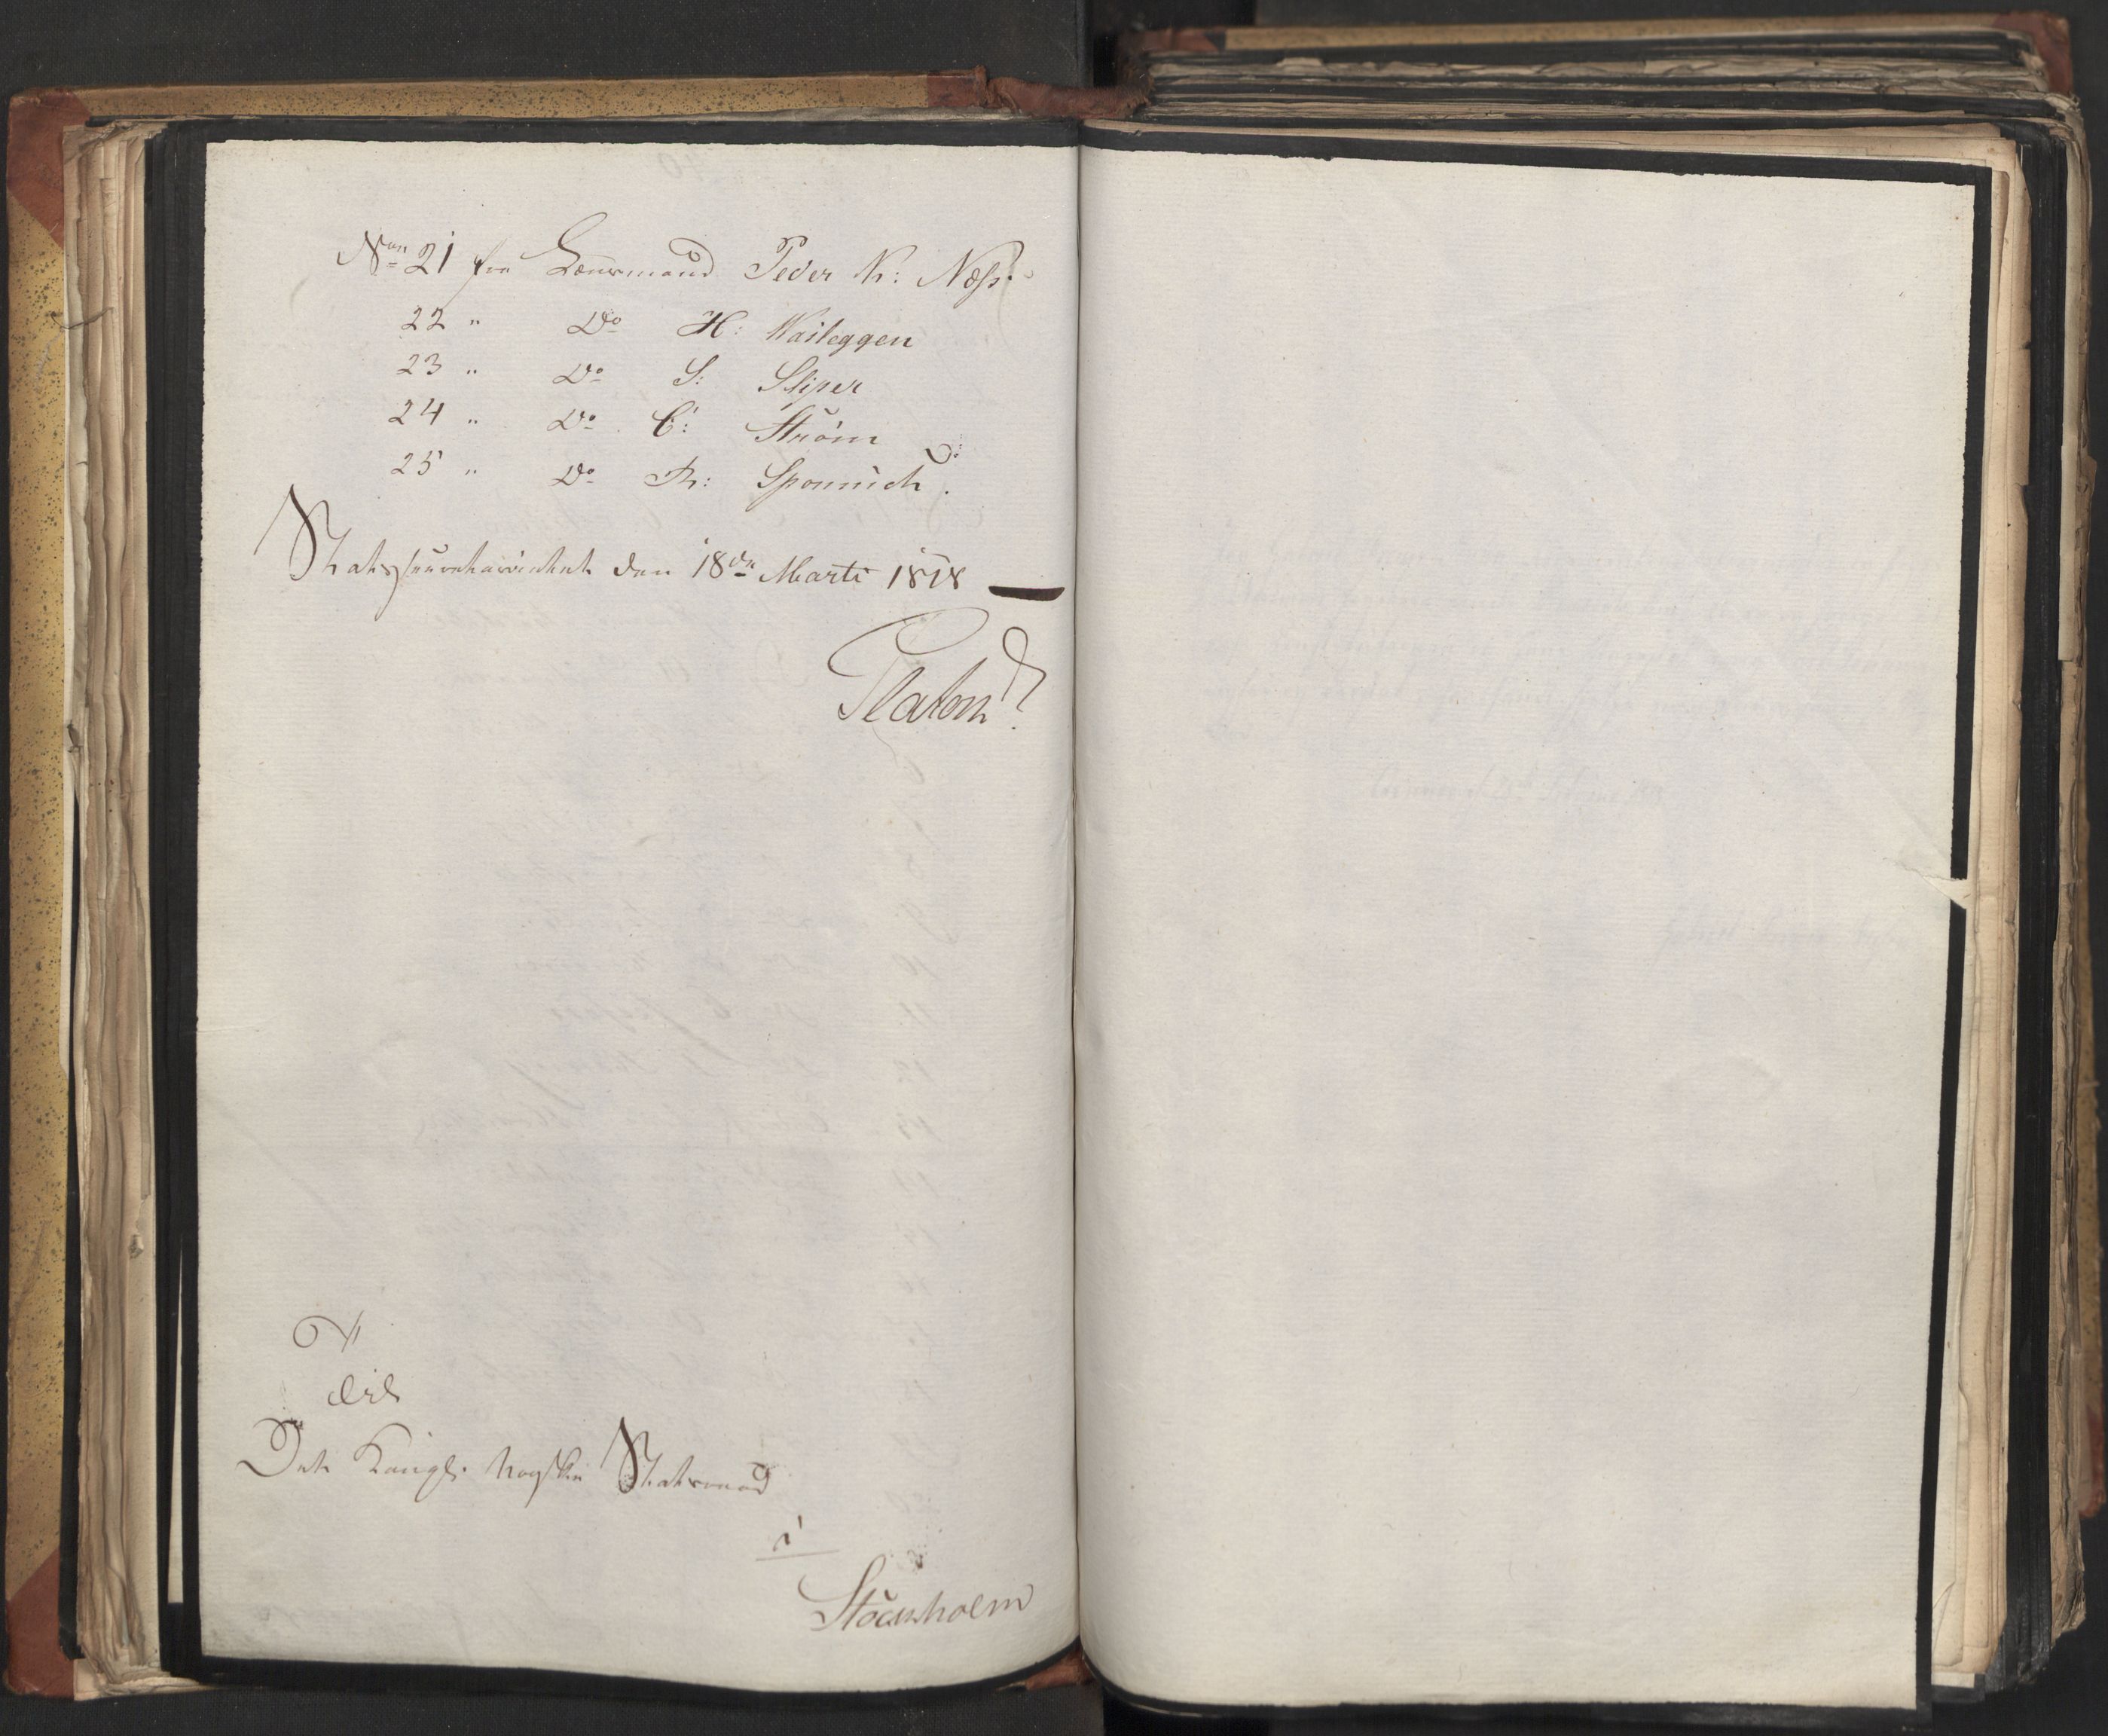 No 21 fra Lænsmand Peder K: Næss.
22 " Do H: Walleggen
23 " Do S: Sliper
24 " Do C: Strøm
25 " Do
Statssecretariatet den 18de Marts 1818
Platou
Til
Det Kongl: Norske Statsraad
i
Stockholm